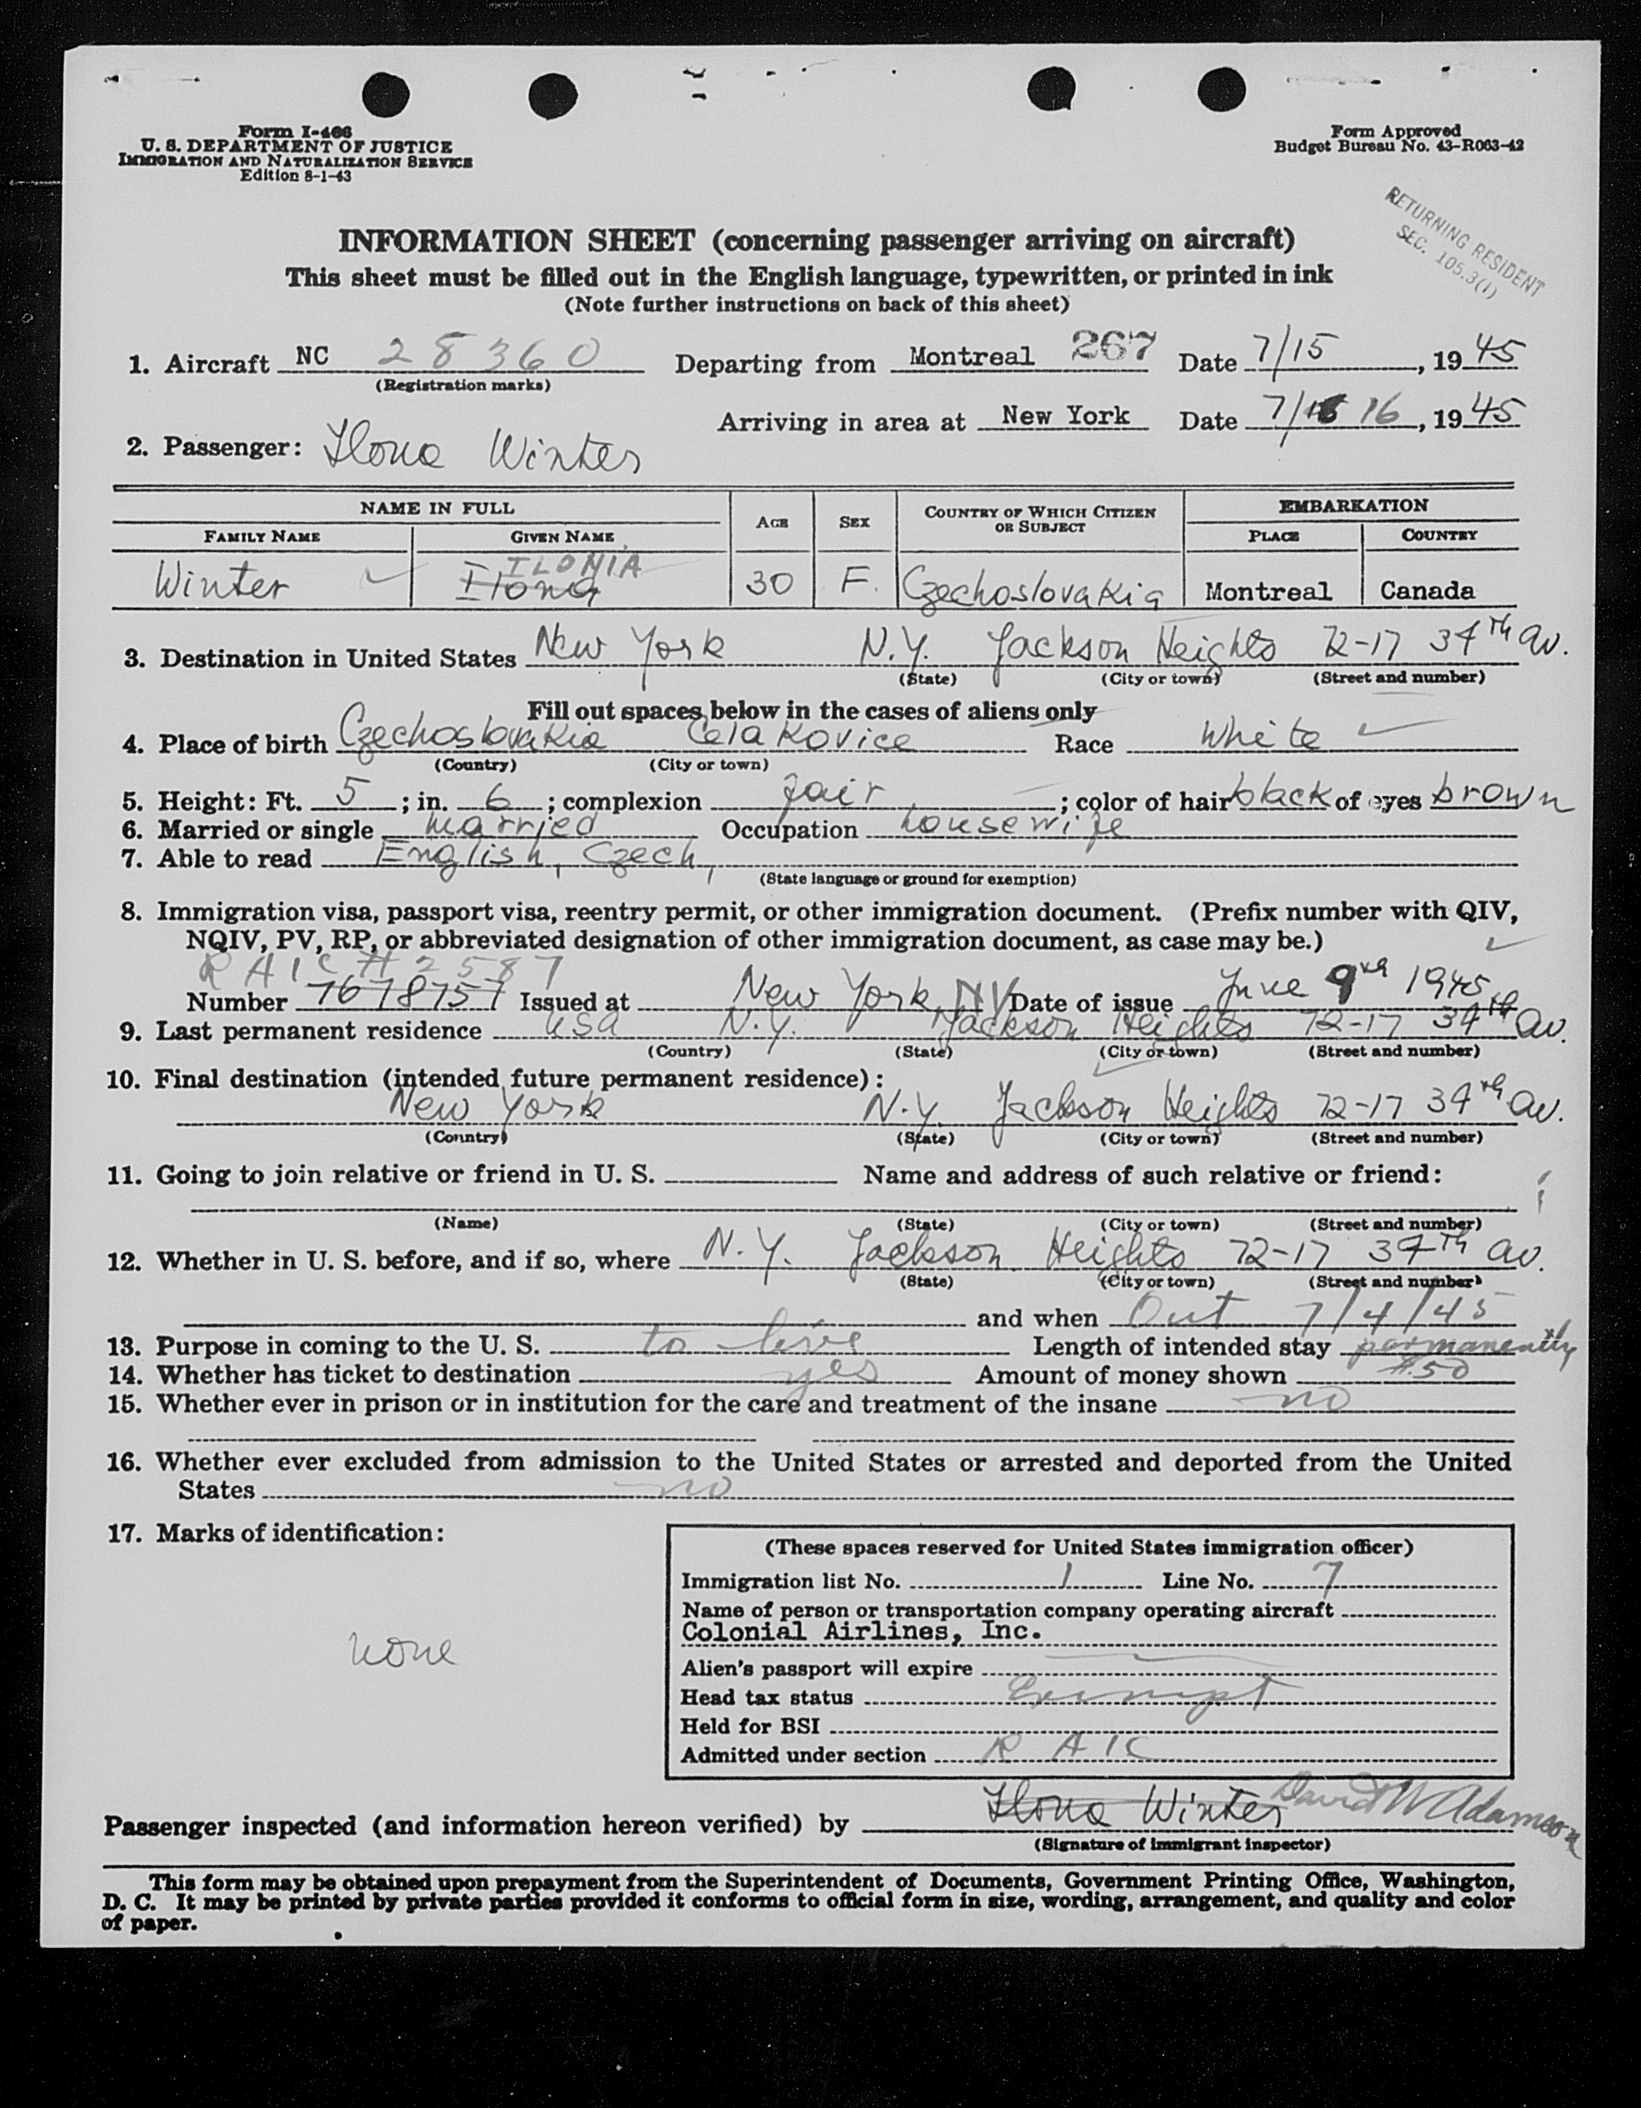 Form I-466
U. S. DEPARTMENT OF JUSTICE
IMMIGRATION AND NATURALIZATION SERVICE
Edition 8-1-43
Form Approved
Budget Bureau No. 43-R063-42
RETURNING RESIDENT
SEC. 105.3(1)
INFORMATION SHEET (concerning passenger arriving on aircraft)
This sheet must be filled out in the English language, typewritten, or printed in ink
(Note further instructions on back of this sheet)
1. Aircraft NC 28360 Departing from Montreal 267 Date 7/15, 1945
(Registration marks)
Arriving in area at New York Date 7/16 16, 1945
2. Passenger: Ilona Winter
NAME IN FULL AGE SEX COUNTRY OF WHICH CITIZEN OR SUBJECT EMBARKATION
FAMILY NAME GIVEN NAME PLACE COUNTRY
ILONIA
Winter Ilona 30 F. Czechoslovakia Montreal Canada
3. Destination in United States New York N.Y. Jackson Heights 72-17 34th av.
(State) (City or town) (Street and number)
Fill out spaces below in the cases of aliens only
4. Place of birth Czechoslovakia Celakovice Race White
(Country) (City or town)
5. Height: Ft. 5; in. 6; complexion fair; color of hair black of eyes brown
6. Married or single married Occupation housewife
7. Able to read English, Czech,
(State language or ground for exemption)
8. Immigration visa, passport visa, reentry permit, or other immigration document. (Prefix number with QIV,
NQIV, PV, RP, or abbreviated designation of other immigration document, as case may be.)
RAIC # 2587
Number 7678757 Issued at New York, NY Date of issue June 9 1945
9. Last permanent residence USA N.Y. Jackson Heights 72-17 34th av.
(Country) (State) (City or town) (Street and number)
10. Final destination (intended future permanent residence):
New York N.Y. Jackson Heights 72-17 34th av.
(Country) (State) (City or town) (Street and number)
11. Going to join relative or friend in U. S. Name and address of such relative or friend:
(Name) (State) (City or town) (Street and number)
12. Whether in U. S. before, and if so, where N.Y. Jackson Heights 72-17 34th av.
(State) (City or town) (Street and number)
and when Out 7/4/45
13. Purpose in coming to the U. S. to live Length of intended stay permanently
14. Whether has ticket to destination yes Amount of money shown #50
15. Whether ever in prison or in institution for the care and treatment of the insane no
16. Whether ever excluded from admission to the United States or arrested and deported from the United
States no
17. Marks of identification:
none
(These spaces reserved for United States immigration officer)
Immigration list No. 1 Line No. 7
Name of person or transportation company operating aircraft
Colonial Airlines, Inc.
Alien's passport will expire
Head tax status Exempt
Held for BSI
Admitted under section RAIC
Passenger inspected (and information hereon verified) by Ilona Winter David W Adamson
(Signature of immigrant inspector)
This form may be obtained upon prepayment from the Superintendent of Documents, Government Printing Office, Washington,
D. C. It may be printed by private parties provided it conforms to official form in size, wording, arrangement, and quality and color
of paper.